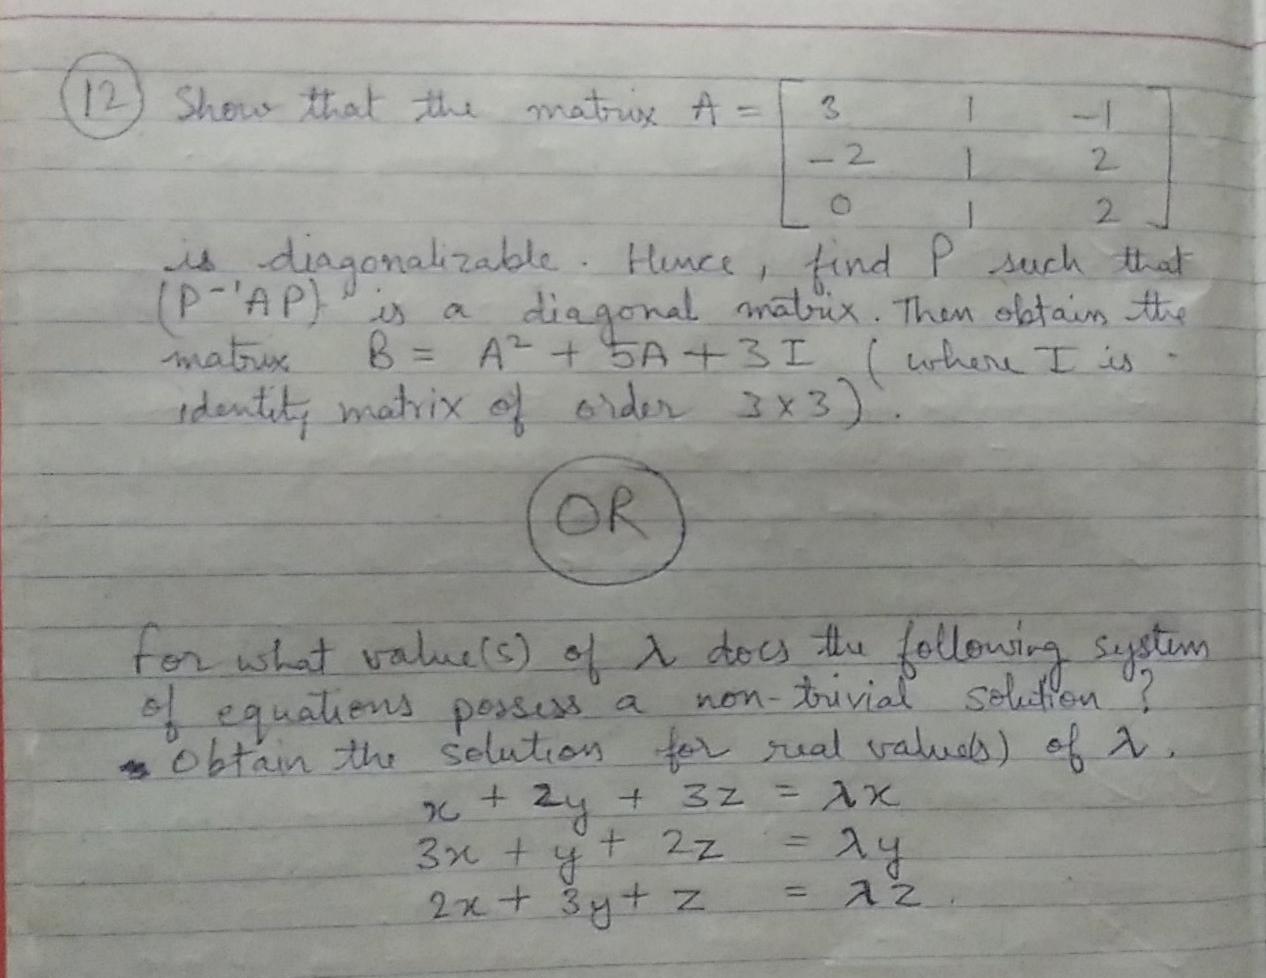 12 Show that the matrix A = [ 3 1 -1
-2 1 2
0 1 2 ]
is diagonalizable. Hence, find P such that
(P⁻¹AP) is a diagonal matrix. Then obtain the
matrix B = A² + 5A + 3I (where I is
identity matrix of order 3x3).
OR
For what value(s) of λ does the following system
of equations possess a non-trivial solution?
Obtain the solution for real value(s) of λ.
x + 2y + 3z = λx
3x + y + 2z = λy
2x + 3y + z = λz.